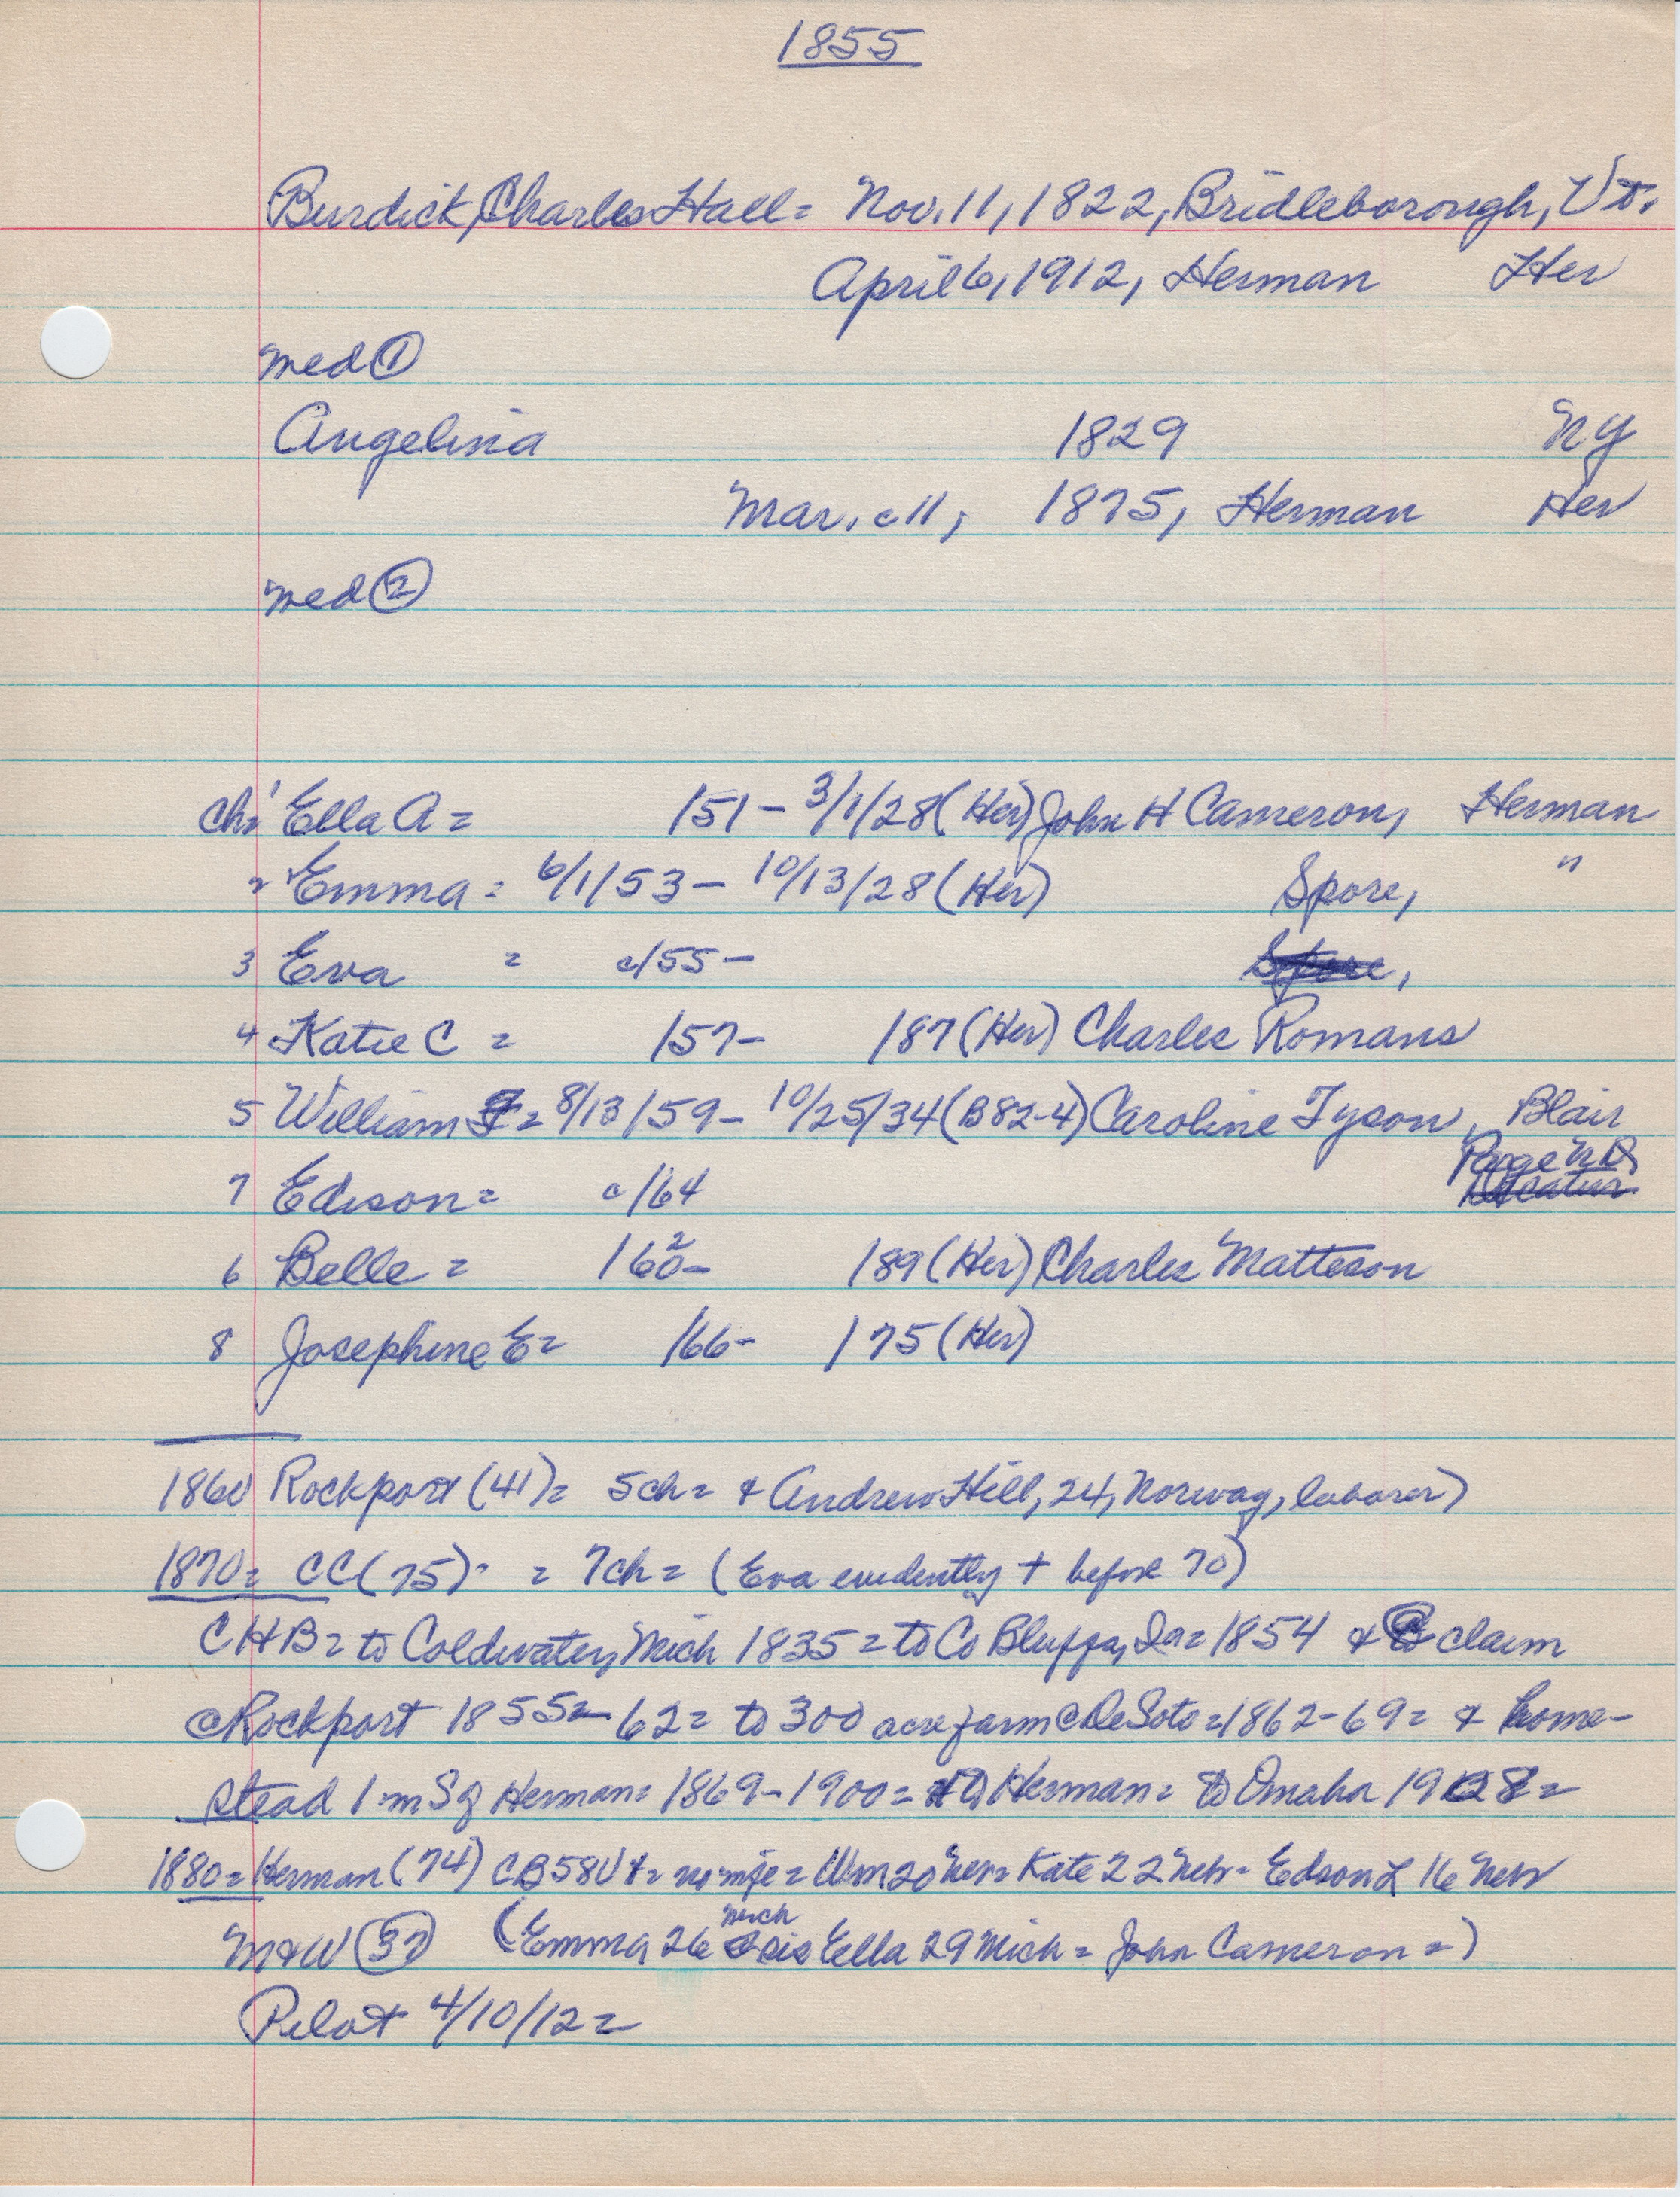 1855
Burdick, Charles Hall = Nov. 11, 1822, Bridleborough, Vt.
April 6, 1912, Herman Her
med ①
Angelina 1829 NY
Mar. c 11, 1875, Herman Her
med ②
ch: 1 Ella A = /51 - 3/1/28 (Her) John H Cameron, Herman
2 Emma = 6/1/53 - 10/13/28 (Her) Spore, "
3 Eva = c/55 - Spore,
4 Katie C = /57 - 187 (Her) Charles Romans
5 William = 8/13/59 - 10/25/34 (B82-4) Caroline Tyson, Blair
Page ND
7 Edison = c/64 Decatur
6 Belle = 1602 - 189 (Her) Charles Matteson
8 Josephine E = /66 - 175 (Her)
1860 Rockport (41) = 5ch = & Andrew Hill, 24, Norway, laborer)
1870 = CC (75) = 7ch = (Eva evidently + before 70)
CHB = to Coldwater, Mich 1835 = to Co Bluffs, Ia = 1854 & claim
@ Rockport 1855 = 62 = to 300 acre farm @ DeSoto = 1862-69 = & home-
stead 1 m S of Herman = 1869-1900 = Herman = to Omaha 1908 =
1880 = Herman (74) CB 58 Vt = no = Wm 20 Neb = Kate 22 Neb - Edson L 16 Neb
M&W 37 (Emma 26 Mich sis Ella 29 Mich = John Cameron =)
Pilot 4/10/12 =